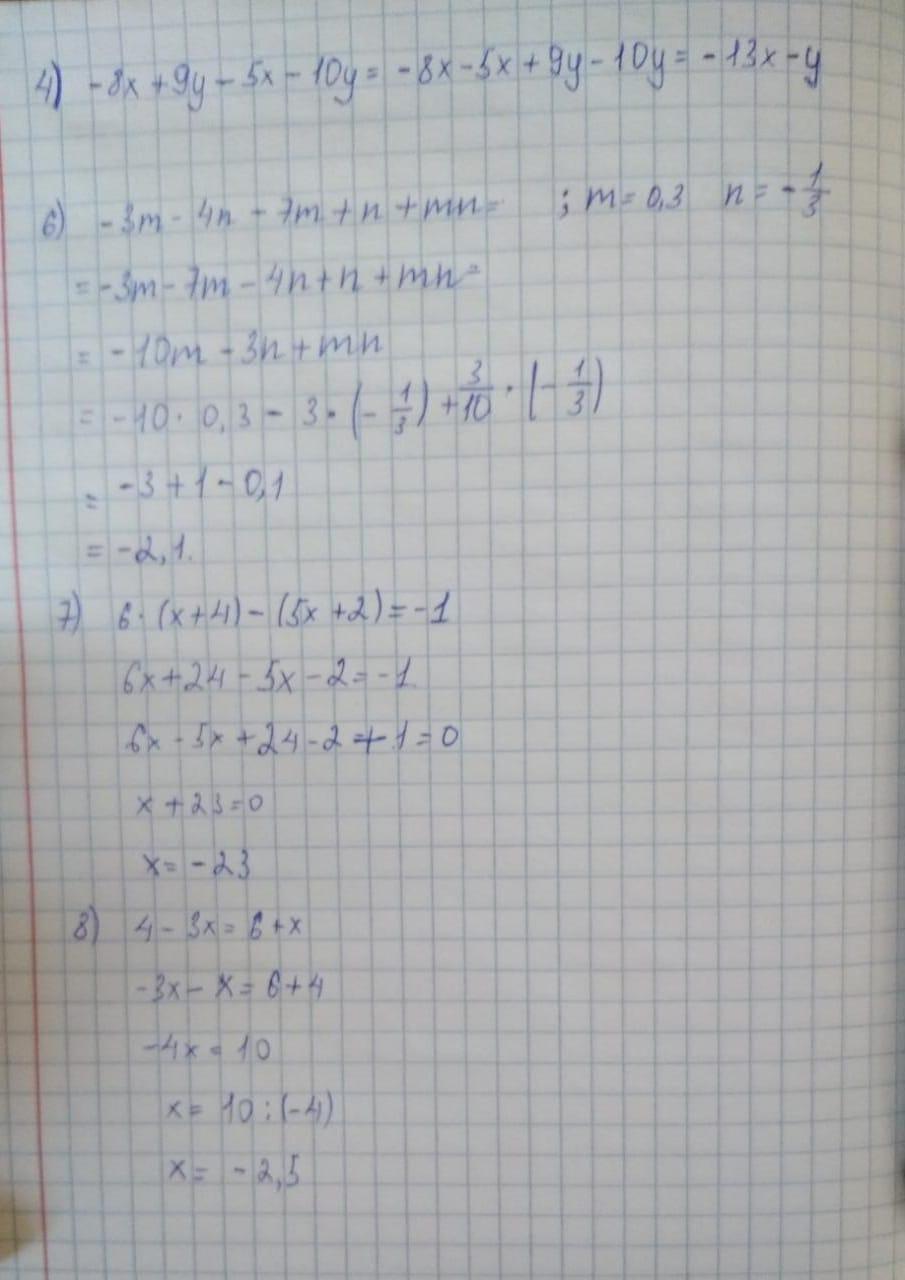 4) -8x + 9y - 5x - 10y = -8x - 5x + 9y - 10y = -13x - y
6) -3m - 4n - 7m + n + mn = ; m = 0,3 n = -1/3
= -3m - 7m - 4n + n + mn =
= -10m - 3n + mn
= -10 · 0,3 - 3 · (-1/3) + 3/10 · (-1/3)
= -3 + 1 - 0,1
= -2,1.
7) 6 · (x + 4) - (5x + 2) = -1
6x + 24 - 5x - 2 = -1
6x - 5x + 24 - 2 + 1 = 0
x + 23 = 0
x = -23
8) 4 - 3x = 6 + x
-3x - x = 6 + 4
-4x = 10
x = 10 : (-4)
x = -2,5